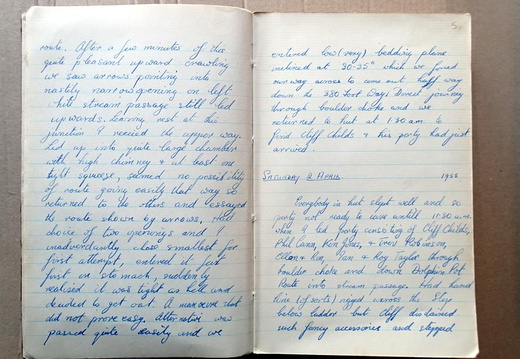 route. After a few minutes of this
quite pleasant upward crawling
we saw arrows pointing into
nastily narrow opening on left
while stream passage still led
upwards. Leaving rest at this
junction I the upper way.
Led up into quite large chamber
with high chimney & at least one
tight squeeze, seemed no possibility
of route going easily that way so
returned to the others and essayed
the route shown by arrows. Had
choice of two openings and I
inadvertently chose smallest for
first attempt, entered it feet
first on stomach, suddenly
realised it was tight as hell and
decided to get out. A manoeuvre that
did not prove easy. Alternative was
passed quite easily and we
5
entered low (very) bedding plane
inclined at 30-35° which we found
our way across to come out half way
down the 380 Foot Way! Direct journey
through boulder choke and we
returned to hut at 1.30 a.m. to
find Cliff Childs & his party had just
arrived.
Saturday 2 April 1955
Everybody in hut slept well and so
party not ready to leave until 11.30 a.m.
when I led party consisting of Cliff Childs,
Phil Cann, Ken Jones, & Trev Robinson,
& Kim, Ian & Roy Taylor through
boulder choke and down Dolphin Pot
Route into stream passage. Had hand
line (of sorts) rigged across the step
below ladder but Cliff disdained
such fancy accessories and stepped